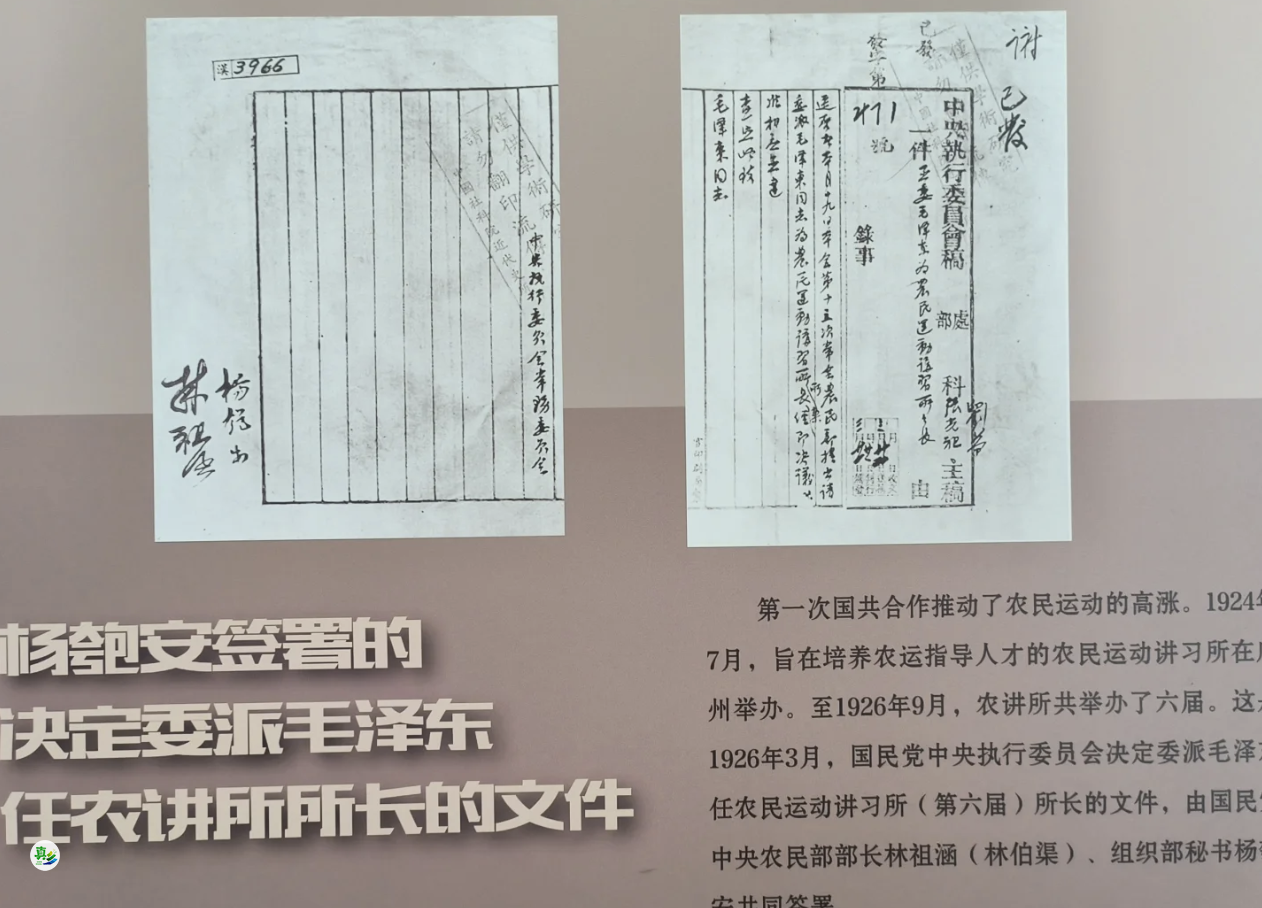 漢3966
僅供學術研
請勿翻印流
中國社科院近代史
中央执行委员会常務委员会
杨匏安
林祖涵
謝
已發
已發
發字第
471
號
中央執行委員會稿
部處
科
主稿
一件
委毛泽东为農民運動講習所所長
由
錄事
逕啓者本月十九日本会第十五次常会農民部提出请
委派毛泽東同志为農民運動講習所所長
毛澤東同志
杨匏安签署的
决定委派毛泽东
任农讲所所长的文件
第一次国共合作推动了农民运动的高涨。1924
7月，旨在培养农运指导人才的农民运动讲习所在
州举办。至1926年9月，农讲所共举办了六届。这
1926年3月，国民党中央执行委员会决定委派毛泽
任农民运动讲习所（第六届）所长的文件，由国民
中央农民部部长林祖涵（林伯渠）、组织部秘书杨
安共同签署
真乡